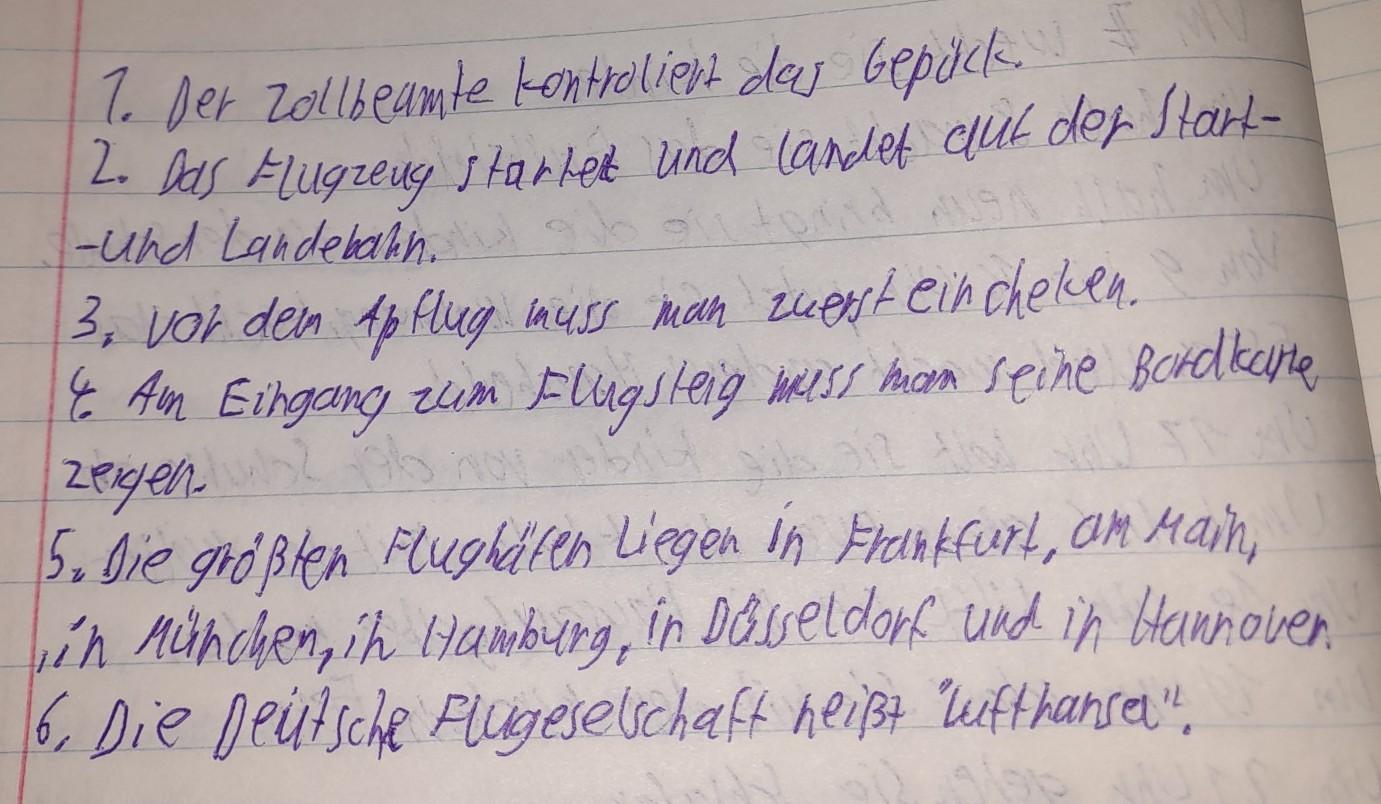 1. Der Zollbeamte kontroliert das Gepäck.
2. Das Flugzeug startet und landet auf der Start-
-und Landebahn.
3. vor dem Apflug muss man zuerst eincheken.
4. Am Eingang zum Flugsteig muss man seine Bordkarte
zeigen.
5. Die größten Flughäfen Liegen in Frankfurt, am Main,
in München, in Hamburg, in Düsseldorf und in Hannover.
6. Die Deutsche Flugeselschaft heißt "Lufthansa".